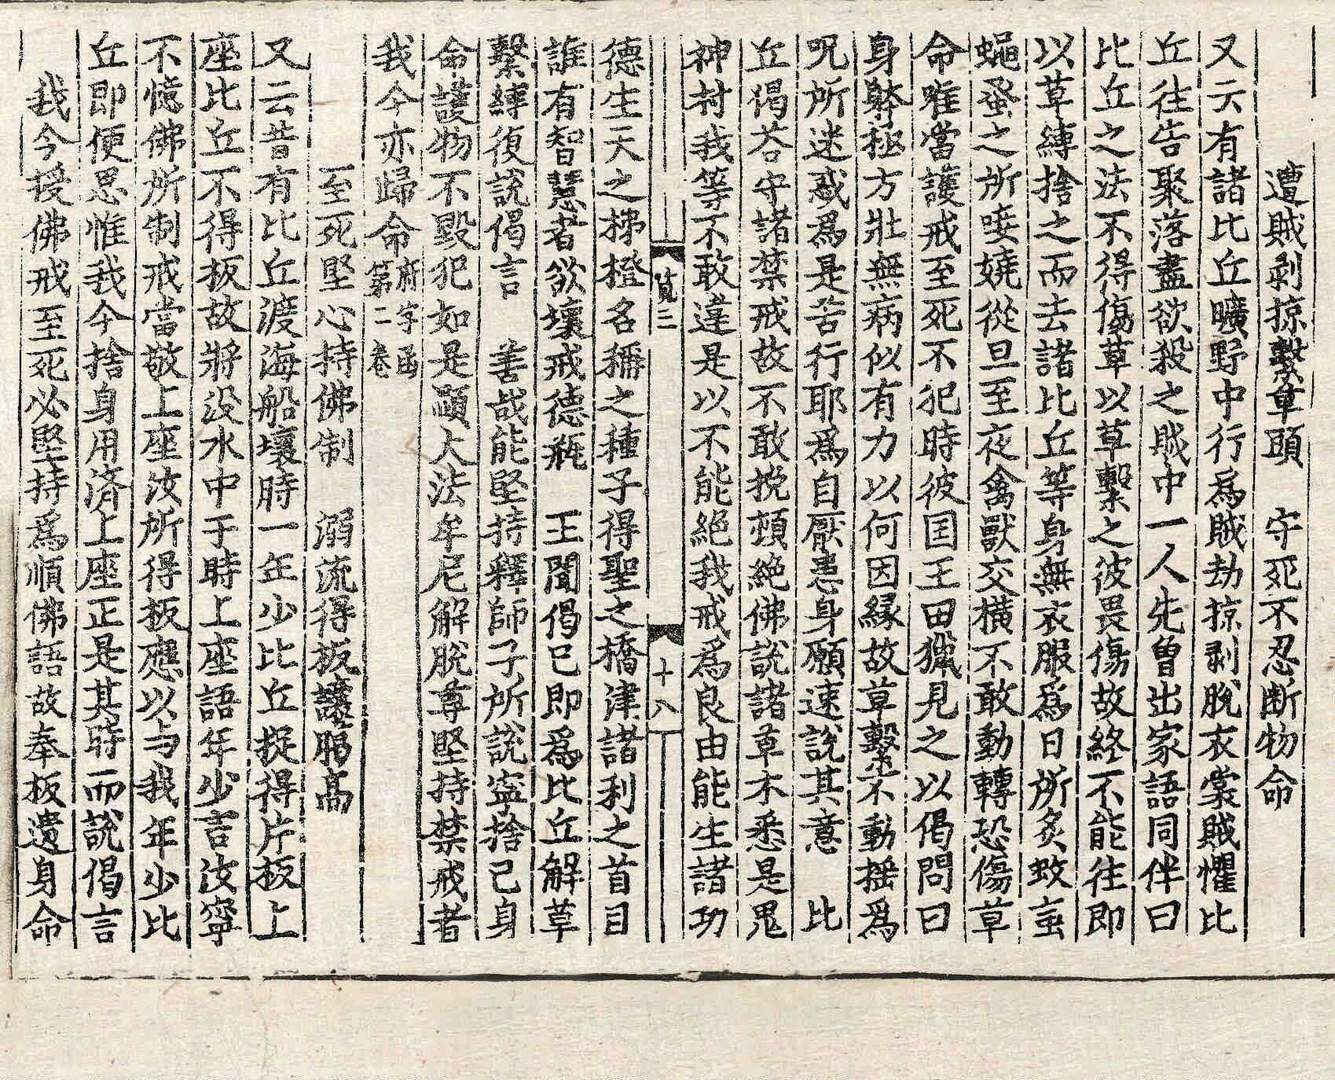 遭賊剥掠繫草頭　守死不忍断物命
又云有諸比丘曠野中行為賊劫掠剥脫衣裳賊懼比
丘往告聚落盡欲殺之賊中一人先曾出家語同伴曰
比丘之法不得傷草以草繫之彼畏傷故終不能往即
以草縛捨之而去諸比丘等身無衣服為日所炙蚊䖟
蠅蚤之所唼嬈從旦至夜禽獸交橫不敢動轉恐傷草
命唯當護戒至死不犯時彼国王田獵見之以偈問曰
身躰極方壯無病似有力以何因縁故草繫不動揺為
呪所迷惑為是苦行耶為自厭患身願速說其意　比
丘偈荅守諸禁戒故不敢挽頓絶佛說諸草木悉是鬼
神村我等不敢違是以不能絕我戒為良由能生諸功
覧二　十八
德生天之梯橙名稱之種子得聖之橋津諸利之首目
誰有智慧者欲壞戒德瓶　王聞偈已即為比丘解草
繫縛復説偈言　善哉能堅持釋師子所説寜捨己身
命護物不毀犯如是顯大法牟尼解脫尊堅持禁戒者
我今亦歸命府字函第二卷
至死堅心持佛制　溺流得板讓䐉高
又云昔有比丘渡海船壞時一年少比丘捉得片板上
座比丘不得板故將没水中于時上座語年少言汝寜
不憶佛所制戒當敬上座汝所得板應以与我年少比
丘即便思惟我今捨身用済上座正是其時而説偈言
我今授佛戒至死必堅持為順佛語故奉板遺身命